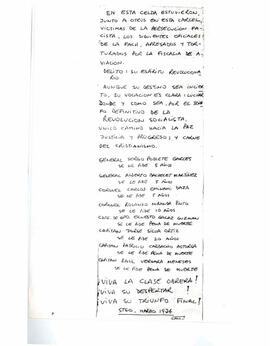 EN ESTA CELDA ESTUVIERON,
JUNTO A OTROS EN ESTA CARCEL,
VICTIMAS DE LA PERSECUCION FAS
CISTA, LOS SIGUIENTES OFICIALES
DE LA FACH, APRESADOS Y TOR-
TURADOS POR LA FISCALIA DE A-
VIACION.
DELITO: SU ESPIRITU REVOLUCIONA
RIO
AUNQUE SU DESTINO SEA INCIER
TO, SU VOCACION ES CLARA: LUCHAR
DONDE Y COMO SEA, POR EL
DEFINITIVO DE LA
REVOLUCION SOCIALISTA,
UNICO CAMINO HACIA LA PAZ
JUSTICIA Y PROGRESO; Y CARNE
DEL CRISTIANISMO.
GENERAL SERGIO POBLETE GARCES
SE LE PIDE 5 AÑOS
GENERAL ALBERTO BACHELET MARTINEZ
SE LE PIDE AÑOS
CORONEL CARLOS OMINAMI DAZA
SE LE PIDE AÑOS
CORONEL ROLANDO MIRANDA PINTO
SE LE PIDE 10 AÑOS
CDTE ERNESTO GALAZ GUZMAN
SE LE PIDE PENA DE MUERTE
CAPITAN JORGE SILVA ORTIZ
SE LE PIDE 20 AÑOS
CAPITAN CARBACHO ASTORGA
SE LE PIDE PENA DE MUERTE
CAPITAN RAUL VERGARA MENESES
SE LE PIDE PENA DE MUERTE
¡VIVA LA CLASE OBRERA!
¡VIVA SU DESPERTAR!
¡VIVA SU TRIUNFO FINAL!
STGO, MARZO 1974